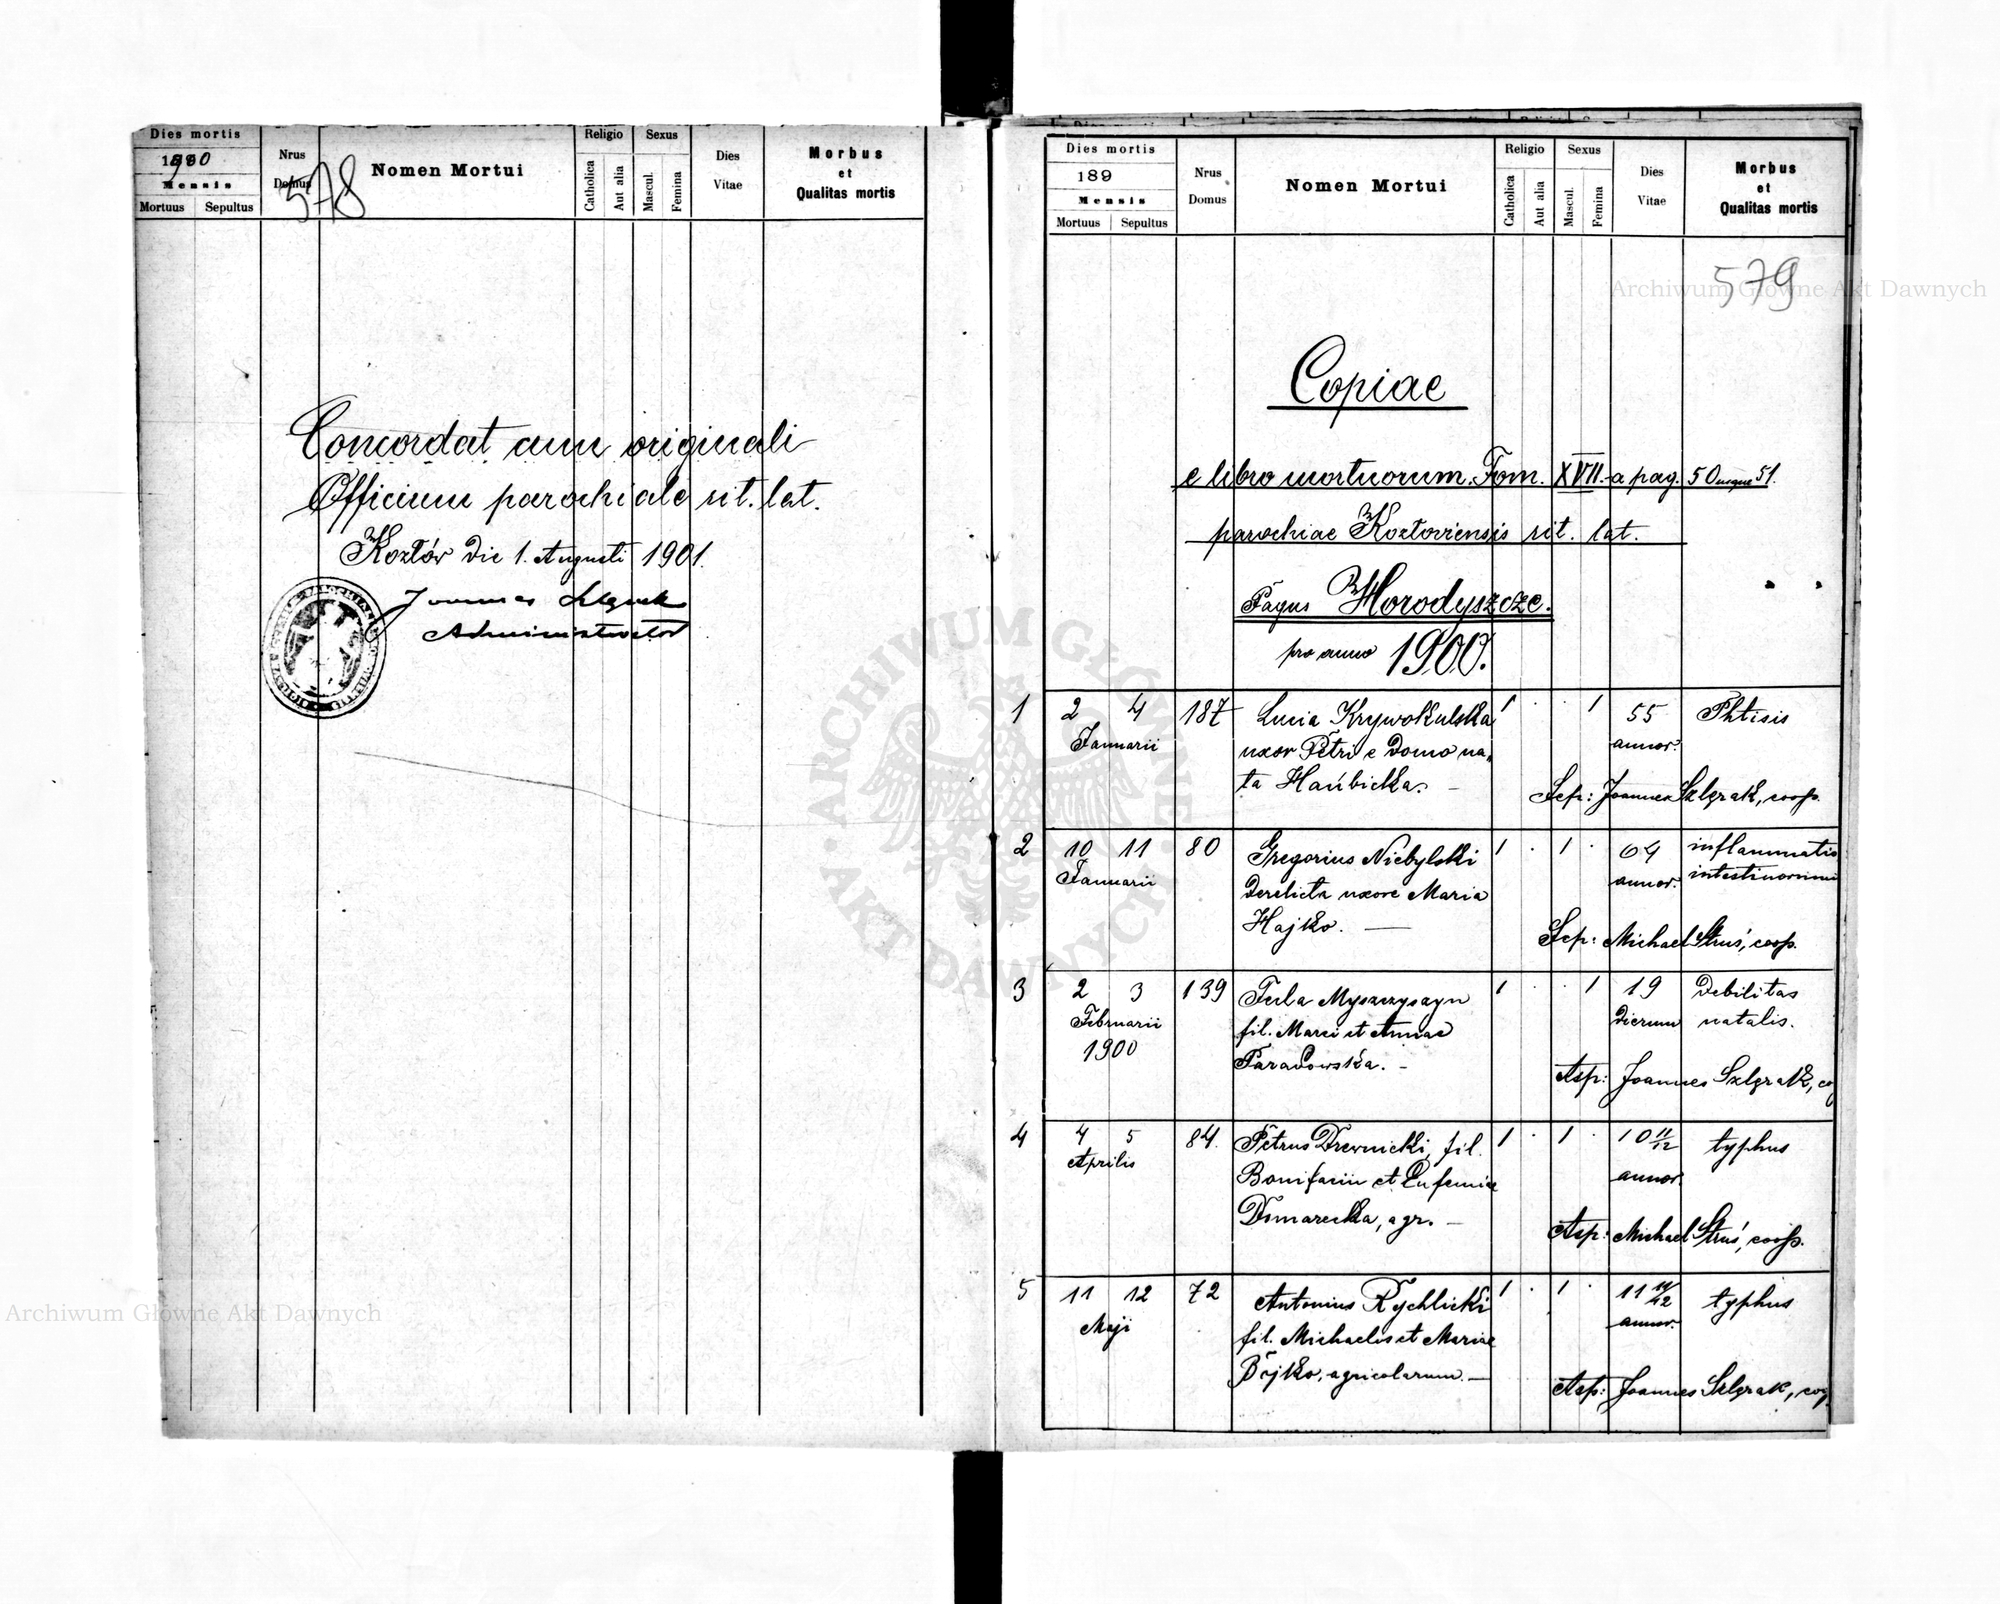 Dies mortis
1900
Mensis
Mortuus Sepultus
Nrus
Domus
578
Nomen Mortui
Religio
Catholica
Aut alia
Sexus
Mascul.
Femina
Dies
Vitae
Morbus
et
Qualitas mortis
Concordat cum originali
Officium parochiale rit. lat.
Kozłów die 1. Augusti 1901.
Joannes Szlęzak
Administrator
Dies mortis
189
Mensis
Mortuus Sepultus
Nrus
Domus
Nomen Mortui
Religio
Catholica
Aut alia
Sexus
Mascul.
Femina
Dies
Vitae
Morbus
et
Qualitas mortis
579
Copiae
e libro mortuorum. Tom. XVII. a pag. 50 usque 51.
parochiae Kozłoviensis rit. lat.
Pagus Horodyszcze.
pro anno 1900.
1 2 4 187 Lucia Krywokulska 1 . . 1 55 Phtisis
Januarii uxor Petri e domo na- annor.
ta Hańbicka. –
Sep: Joannes Szlęzak, coop.
2 10 11 80 Gregorius Niebylski 1 . 1 . 64 inflammatio
Januarii derelicta uxore Maria annor. intestinorum
Hajko. —
Sep: Michael Struś, coop.
3 2 3 139 Tecla Myszczyszyn 1 . . 1 19 Debilitas
Februarii fil. Marci et Annae dierum natalis.
1900 Paradowska. –
Asp: Joannes Szlęzak,
4 4 5 84. Petrus Drewnicki, fil. 1 . 1 . 10 11/12 typhus
Aprilis Bonifacii et Eufemiae annor.
Domarecka, agr. –
Asp: Michael Struś, coop.
5 11 12 72 Antonius Rychlicki 1 . 1 . 11 11/12 typhus
Maji fil. Michaelis et Mariae annor.
Bojko, agricolarum. –
Asp: Joannes Szlęzak,
ARCHIWUM GŁÓWNE
AKT DAWNYCH
Archiwum Główne Akt Dawnych
Archiwum Główne Akt Dawnych